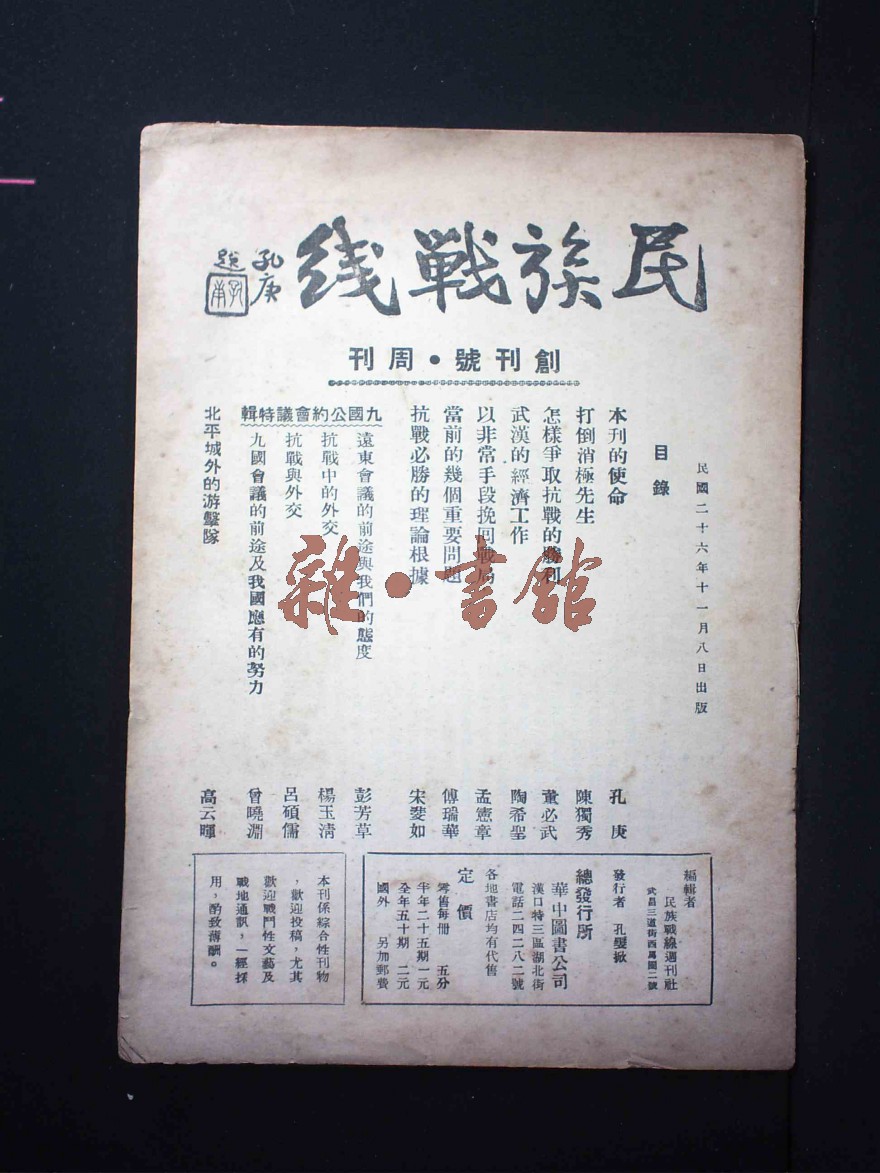 民族戰綫
孔庚
題
創刊號•周刊
民國二十六年十一月八日出版
目錄
本刊的使命 孔庚
打倒消極先生 陳獨秀
怎樣爭取抗戰的勝利 董必武
武漢的經濟工作 陶希聖
以非常手段挽回戰局 孟憲章
當前的幾個重要問題 傅瑞華
抗戰必勝的理論根據 宋斐如
九國公約會議特輯
遠東會議的前途與我們的態度 彭芳草
抗戰中的外交 楊玉清
抗戰與外交 呂碩儒
九國會議的前途及我國應有的努力 曾曉淵
北平城外的游擊隊 高云暉
雜•書館
編輯者
民族戰線週刊社
武昌三道街西萬園二號
發行者 孔
總發行所
華中圖書公司
漢口特三區湖北街
電話二四二八二號
各地書店均有代售
定價
零售每冊 五分
半年二十五期一元
全年五十期 二元
國外 另加郵費
本刊係綜合性刊物
，歡迎投稿，尤其
歡迎戰鬥性文藝及
戰地通訊，一經採
用，酌致薄酬。